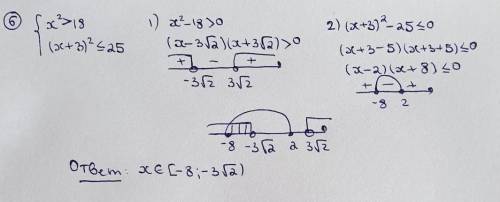 ⑥ { x²>18
(x+3)²≤25
1) x²-18>0
(x-3√2)(x+3√2)>0
+ - +
-3√2 3√2
2) (x+3)²-25≤0
(x+3-5)(x+3+5)≤0
(x-2)(x+8)≤0
+ - +
-8 2
-8 -3√2 2 3√2
Ответ: x∈[-8;-3√2)